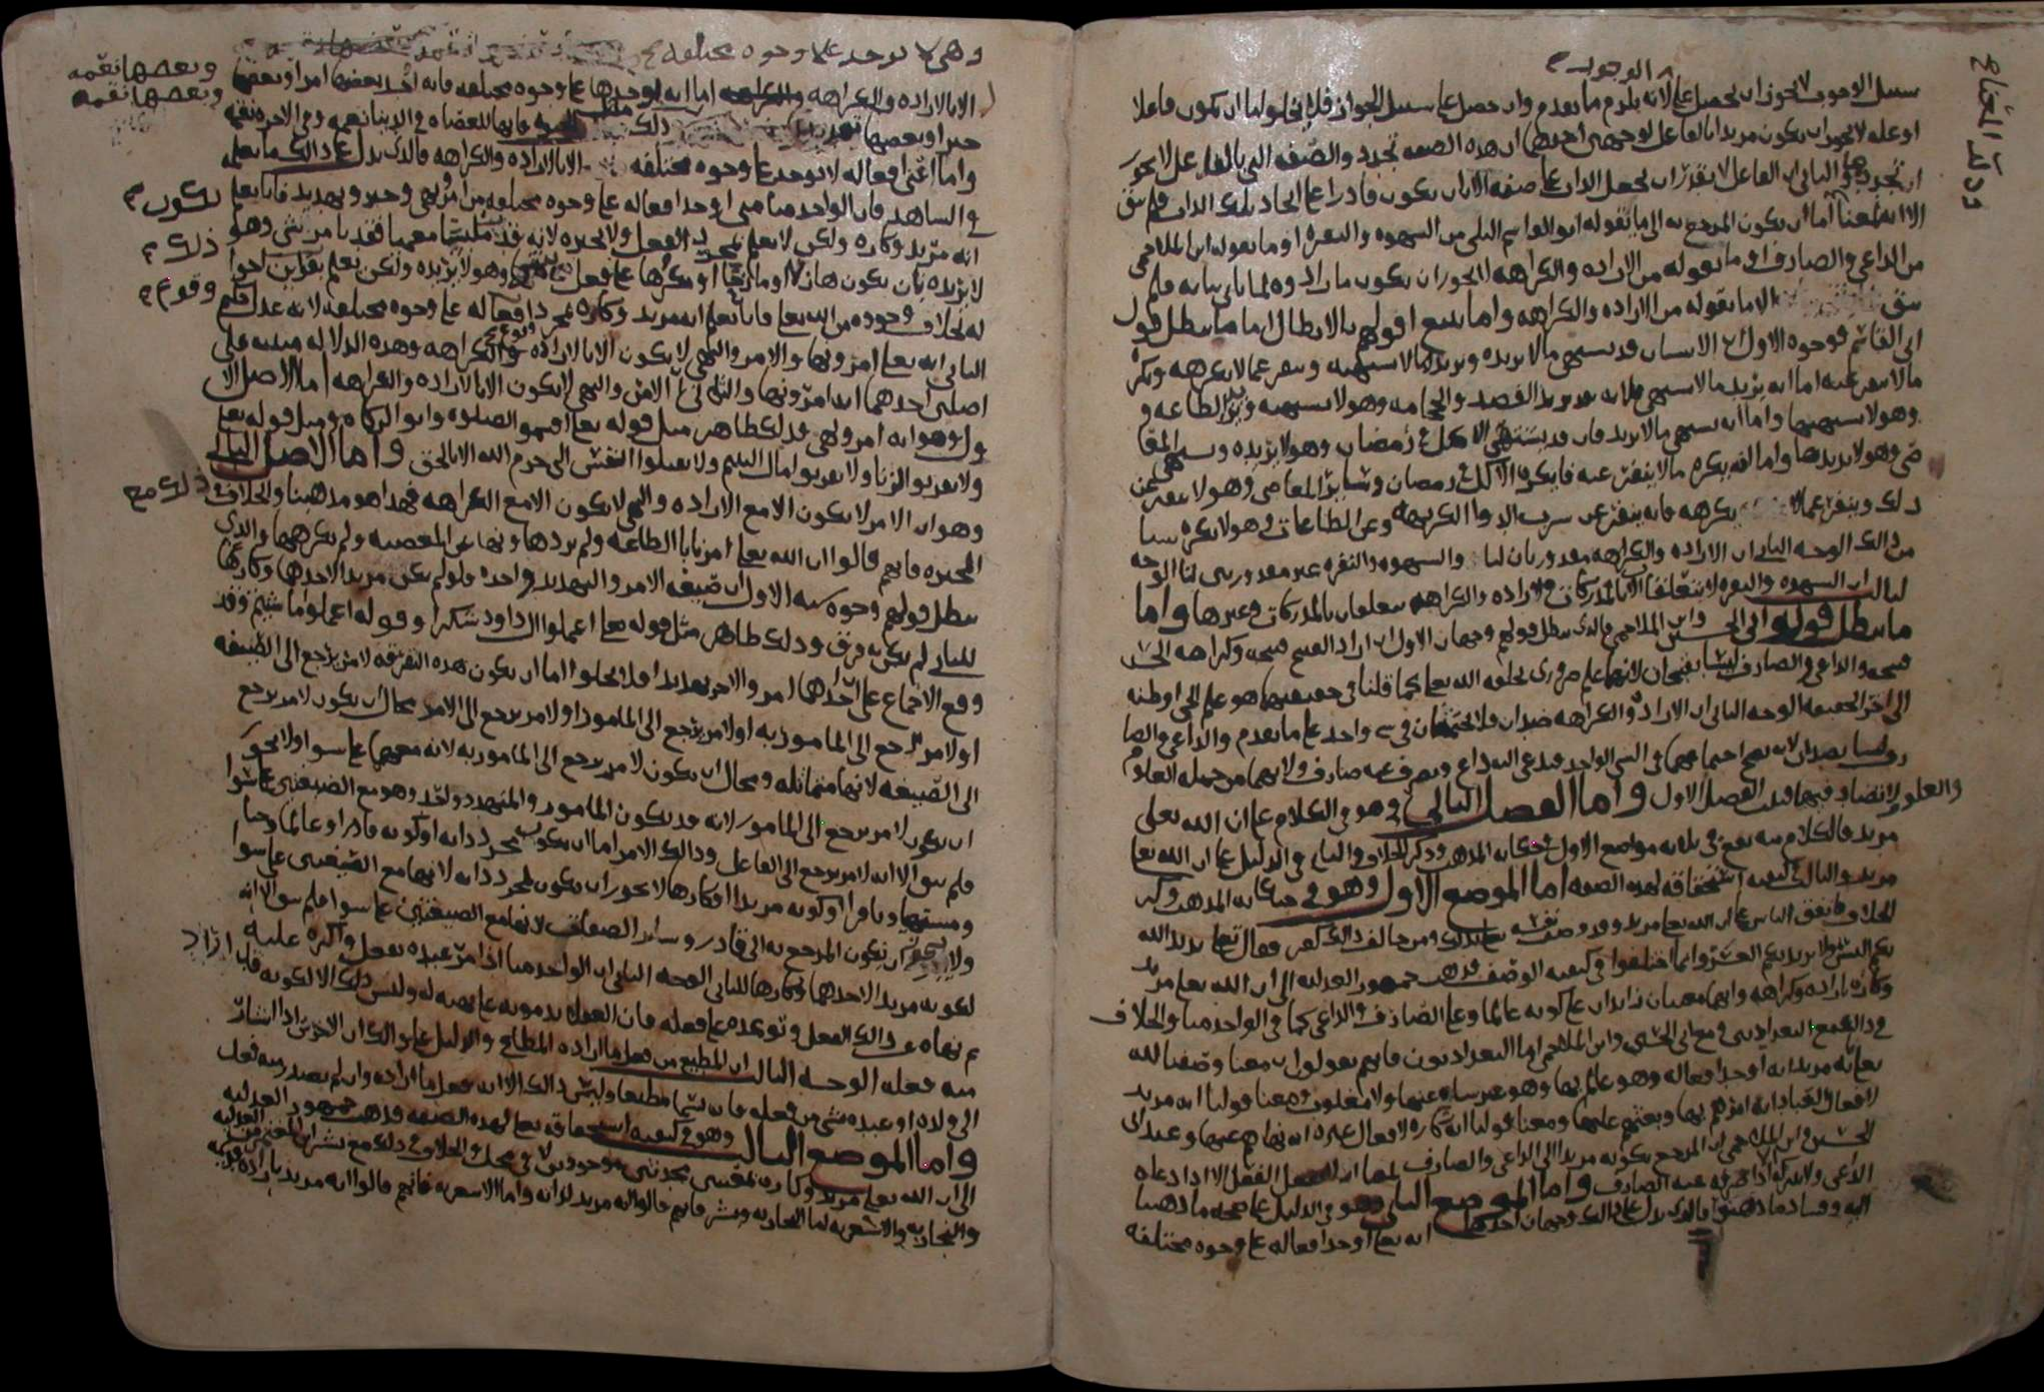 سبيل الوجوب لا يجوز ان يحصل على لانه يلزم ما تقدم وان حصل على سبيل الجواز فلا يخلو اما ان يكون فاعلا
او عله لا يجوز ان يكون مريدا بالفاعل لوجهين احدهما ان هذه الصفه تجدد والصفه التي بالفاعل لا يجوز
ان تجدد الثاني ان الفاعل لا يقدر ان يجعل الذات على صفه الا بان يكون قادرا على ايجاد تلك الذات فلم يبق
الا انه لمعنا اما ان يكون المرجع به الى ما يقوله ابو القاسم البلخي من الشهوه والنفره او ما يقوله ابن الملاحمي
من الداعي والصارف او ما نقوله من الاراده والكراهه لا يجوز ان يكون ما راد وه لما ياتي بيانه فلم
يبق الا ما نقوله من الاراده والكراهه واما تتبع اقوالهم بالابطال اما ما يبطل قول
ابي القاسم فوجوه الاول ان الانسان قد يشتهي ما لا يريده ويريد ما لا يشتهيه وينفر عما لا يكرهه ويكره
ما لا ينفر عنه اما انه يريد ما لا يشتهي فلانه قد يريد الفصد والحجامه وهو لا يشتهيه ويريد الطاعه و
وهو لا يشتهيها واما انه يشتهي ما لا يريد فان قد يشتهي الاكل في رمضان وهو لا يريده ويشتهي المعا
صي وهو لا يريدها واما انه يكره ما لا ينفر عنه فانه يكره الاكل في رمضان وسائر المعاصي وهو لا ينفر عن
ذلك وينفر عما لا يكرهه فانه ينفر عن شرب الدوا الكريهه وعن الطاعات وهو لا يكره شيا
من ذلك الوجه الثاني ان الاراده والكراهه مقدوران لنا والشهوه والنفره غير مقدورين لنا الوجه
الثالث ان الشهوه والنفره لا يتعلقا الا بالمدركات والاراده والكراهه يتعلقان بالمدركات وغيرها واما
ما يبطل قول ابي الحسين وابن الملاحمي فالذي يبطل قولهم وجهان الاول ان اراد القبيح قبيحه وكراهه الحسن
قبيحه والداعي والصارف ليسا بقبيحان لانهما علم ضروري يخلقه الله تعلى كما قلنا في حقيقتهما هو علم الحي او ظنه
الى اخر الحقيقه الوجه الثاني ان الاراده والكراهه ضدان فلا يجتمعان في شي واحد على ما تقدم والداعي والصا
رف ليسا بضدان لانه يصح اجتماعهما في الشي الواحد فيدعي اليه داع ويصرف عنه صارف ولانهما من جمله العلوم
والعلوم لا تضاد فيها فبهذا الفصل الاول واما الفصل الثاني وهو في الكلام على ان الله تعلى
مريد فالكلام منه يقع في ثلاثه مواضع الاول في حكايه المذهب وذكر الخلاف والثاني في الدليل على ان الله تعا
مريد والثالث في كيفيه استحقاقه لهذه الصفه اما الموضع الاول وهو في حكايه المذهب وذكر
الخلاف فاتفق الناس على ان الله تعا مريد وقد وصف نفسه تعا بذلك ومن خالف ذلك كفر فقال تعا يريد الله
بكم اليسر ولا يريد بكم العسر وانما اختلفوا في كيفيه الوصف فذهب جمهور العدليه الى ان الله تعا مريد
وكاره باراده وكراهه وانهما معنيان زايدان على كونه عالما وعلى الصارف والداعي كما في الواحد منا والخلاف
في ذلك مع البغداديين ومع ابي الحسين وابن الملاحمي اما البغداديون فانهم يقولون ان معنا وصفنا لله
تعا بانه مريد انه اوجد افعاله وهو عالم بها وهو غير ساه عنها ولا مغلوب ومعنا قولنا انه مريد
لافعال العباد انه امرهم بها وبعثهم عليها ومعنا قولنا انه كاره لافعال غيره انه نهاهم عنها وعند ابي
الحسين وابن الملاحمي ان المرجع بكونه مريدا الى الداعي والصارف الا اذا دعاه
الداعي ولا يتركه الا اذا صرفه عنه الصارف واما الموضع الثاني وهو في الدليل على صحه ما ذهبنا
اليه وفساد ما ذهبوا فالذي يدل على ذلك وجهان احدهما انه تعا اوجد افعاله على وجوه مختلفه
وهي لا توجد على وجوه مختلفه
الا بالاراده والكراهه اما انه اوجدها على وجوه مختلفه فانه اوجد بعضها امرا وبعضها
خبرا وبعضها تهديدا ذلك فانها للعصاه في الدنيا نعمه وفي الاخره نقمه
وبعضها نعمه
وبعضها نقمه
واما ان افعاله لا توجد على وجوه مختلفه الا بالاراده والكراهه فالذي يدل على ذلك ما نعلمه
في الشاهد فان الواحد منا متى اوجد افعاله على وجوه مختلفه من امر ونهي وخبر وتهديد فانا نعلم
انه مريد وكاره ولكن لا نعلم بمجرد الفعل ولا نخبره لانه قد يامر بشي وهو
لا يريده بان يكون هازلا او مازحا او مكرها على فعل وهو لا يريده ولكن نعلم بقراين احوا
له بخلاف وجوده من الله تعا فانا نعلم انه مريد وكاره بمجرد افعاله على وجوه مختلفه لانه عدل حكيم
الثاني انه تعا امر ونها والامر والنهي لا يكون الا بالاراده والكراهه وهذه الدلاله مبنيه على
اصلين احدهما انه امر ونها والثاني ان الامر والنهي لا يكون الا بالاراده والكراهه اما الاصل الا
ول وهو انه امر ونهى فذلك ظاهر مثل قوله تعا اقيموا الصلوه واتوا الزكاه ومثل قوله تعا
ولا تقربوا الزنا ولا تقربوا مال اليتيم ولا تقتلوا النفس التي حرم الله الا بالحق واما الاصل الثاني
وهو ان الامر لا يكون الا مع الاراده والنهي لا يكون الا مع الكراهه فهذا هو مذهبنا والخلاف في ذلك مع
المجبره فانهم قالوا ان الله تعا امرنا بالطاعه ولم يردها ونها عن المعصيه ولم يكرهها والذي
يبطل قولهم وجوه ثلثه الاول ان صيغه الامر والتهديد واحده فلو لم يكن مريدا لاحدها وكارها
للثاني لم يكن به فرق وذلك ظاهر مثل قوله تعا اعملوا ال داود شكرا وقوله اعملوا ما شيتم وقد
وقع الاجماع على ان احدها امر والاخر تهديدا فلا يخلوا اما ان يكون هذه التفرقه لامر يرجع الى الصيغه
او لامر يرجع الى المامور به او لامر يرجع الى المامور او لامر يرجع الى الامر محال ان يكون لامر يرجع
الى الصيغه لانها متماثله ومحال ان يكون لامر يرجع الى المامور به لانه معهما على سوا ولا يجوز
ان يكون لامر يرجع الى المامور لانه قد يكون المامور والمتهدد واحد وهو مع الصيغتين على سوا
فلم يبق الا انه لامر يرجع الى الفاعل وذلك الامر اما ان يكون بمجرد ذاته او كونه قادرا او عالما وحيا
ومشتهيا ونافرا او كونه مريدا او كارها لا يجوز ان يكون لمجرد ذاته لانها مع الصيغتين على سوا
ولا يجوز ان يكون المرجع به الى قادر وسائر الصفات لانها مع الصيغتين على سوا فلم يبق الا انه
لكونه مريدا لاحدهما وكارها للثاني الوجه الثاني ان الواحد منا اذا امر عبده بفعل واكره عليه
ثم نهاه عن ذلك الفعل وتوعده على فعله فان العقلا يذمونه على نهيه له وليس ذلك الا لكونه قد اراد
منه فعله الوجه الثالث ان المطيع من فعل ما اراده المطاع والدليل على ذلك ان الاخرس اذا اشار
الى ولده او عبده بشي من فعله فانه يسما مطيعا وليس ذلك الا انه فعل ما اراده وان لم يصدر منه فعل
واما الموضع الثالث وهو في كيفيه استحقاقه تعا لهذه الصفه فذهب جمهور العدليه
الى ان الله تعا مريد وكاره بمعنيين محدثين موجودين لا في محل والخلاف في ذلك مع بشر ابن المعتمر من العدليه
والنجاريه والاشعريه اما النجاريه وبشر فانهم قالوا انه مريد لذاته واما الاشعريه فانهم قالوا انه مريد باراده قديمه